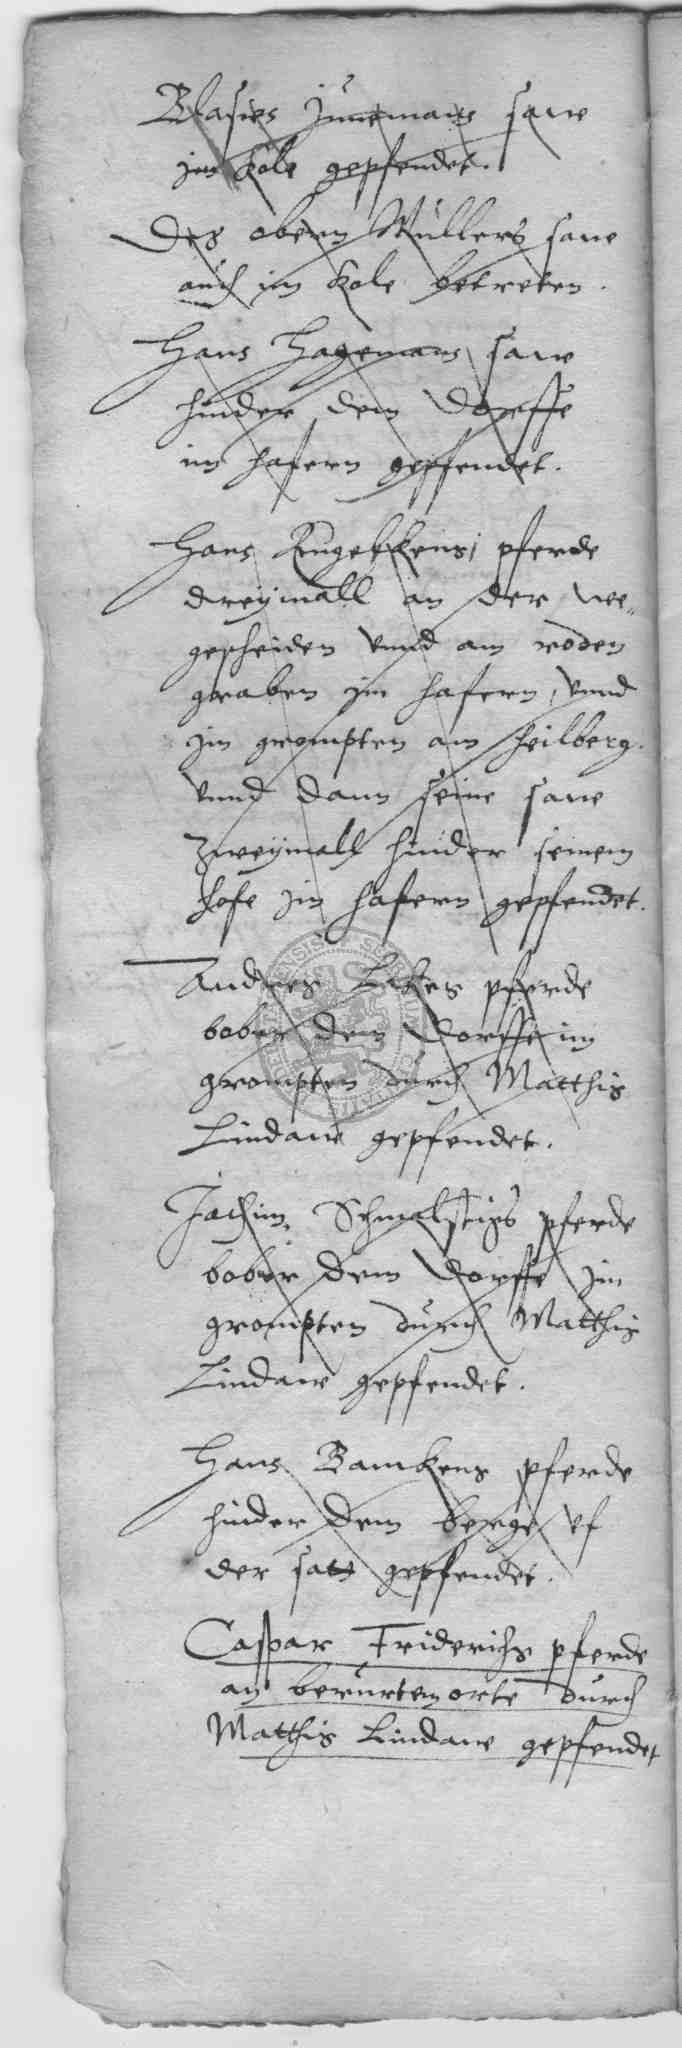 Blasies Junemans sawe
im Kole gepfendet.
Des obern Müllers sawe
auch im Kole betreten.
Hans Hagemans sawe
hinder dem Dorffe
im hafern gepfendet.
Hans pferde
dreymall an der wee„
gescheiden vnnd am roden
graben im hafern, vnnd
jm grompten am heilberg.
vnnd dann seine sawe
zweymall hinder seinem
hofe jm hafern gepfendet.
Andres pferde
bober dem Dorffe im
grompten durch Matthis
Lindawe gepfendet.
Jochim Schmalstigs pferde
bober dem Dorffe jm
grompten durch Matthis
Lindawe gepfendet.
Hans Bamkens pferde
hinder dem berge vf
der satt gepfendet.
Caspar Friderichs pferde
an berurtem orte durch
Matthis Lindawe gepfendet